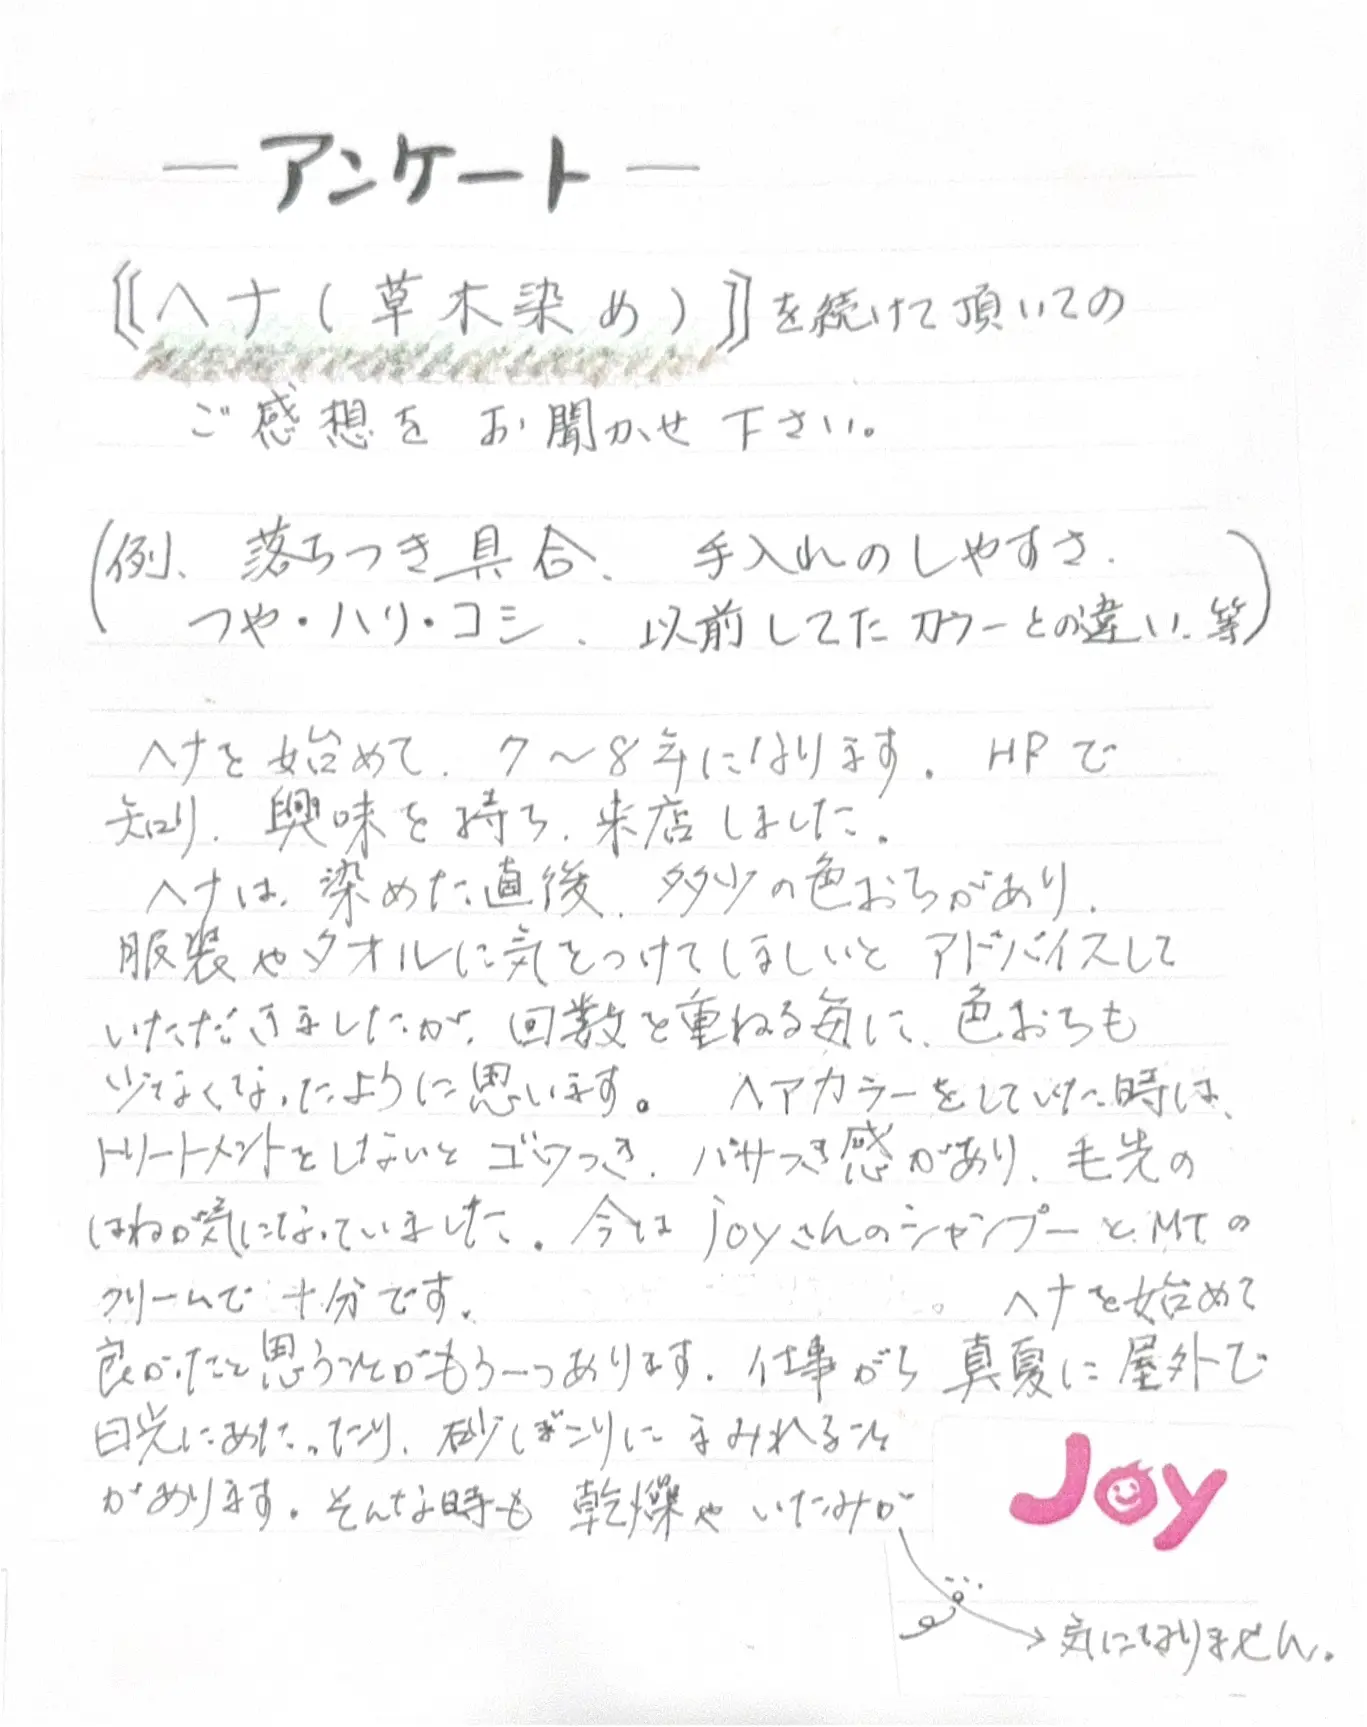 — アンケート —
《ヘナ(草木染め)》を続けて頂いての
ご感想をお聞かせ下さい。
(例、落ちつき具合、手入れのしやすさ、
つや・ハリ・コシ、以前してたカラーとの違い、等)
ヘナを始めて、7〜8年になります。HPで
知り、興味を持ち、来店しました。
ヘナは、染めた直後、多少の色おちがあり、
服装やタオルに気をつけてほしいとアドバイスして
いただきましたが、回数を重ねる毎に、色おちも
少なくなったように思います。ヘアカラーをしていた時は、
トリートメントをしないとゴワつき、パサつき感があり、毛先の
はねが気になっていました。今はjoyさんのシャンプーとMTの
クリームで十分です。ヘナを始めて
良かったと思うことがもう一つあります。仕事がら真夏に屋外で
日光にあたったり、砂ぼこりにまみれること
があります。そんな時も乾燥やいたみが
→気になりません。
Joy